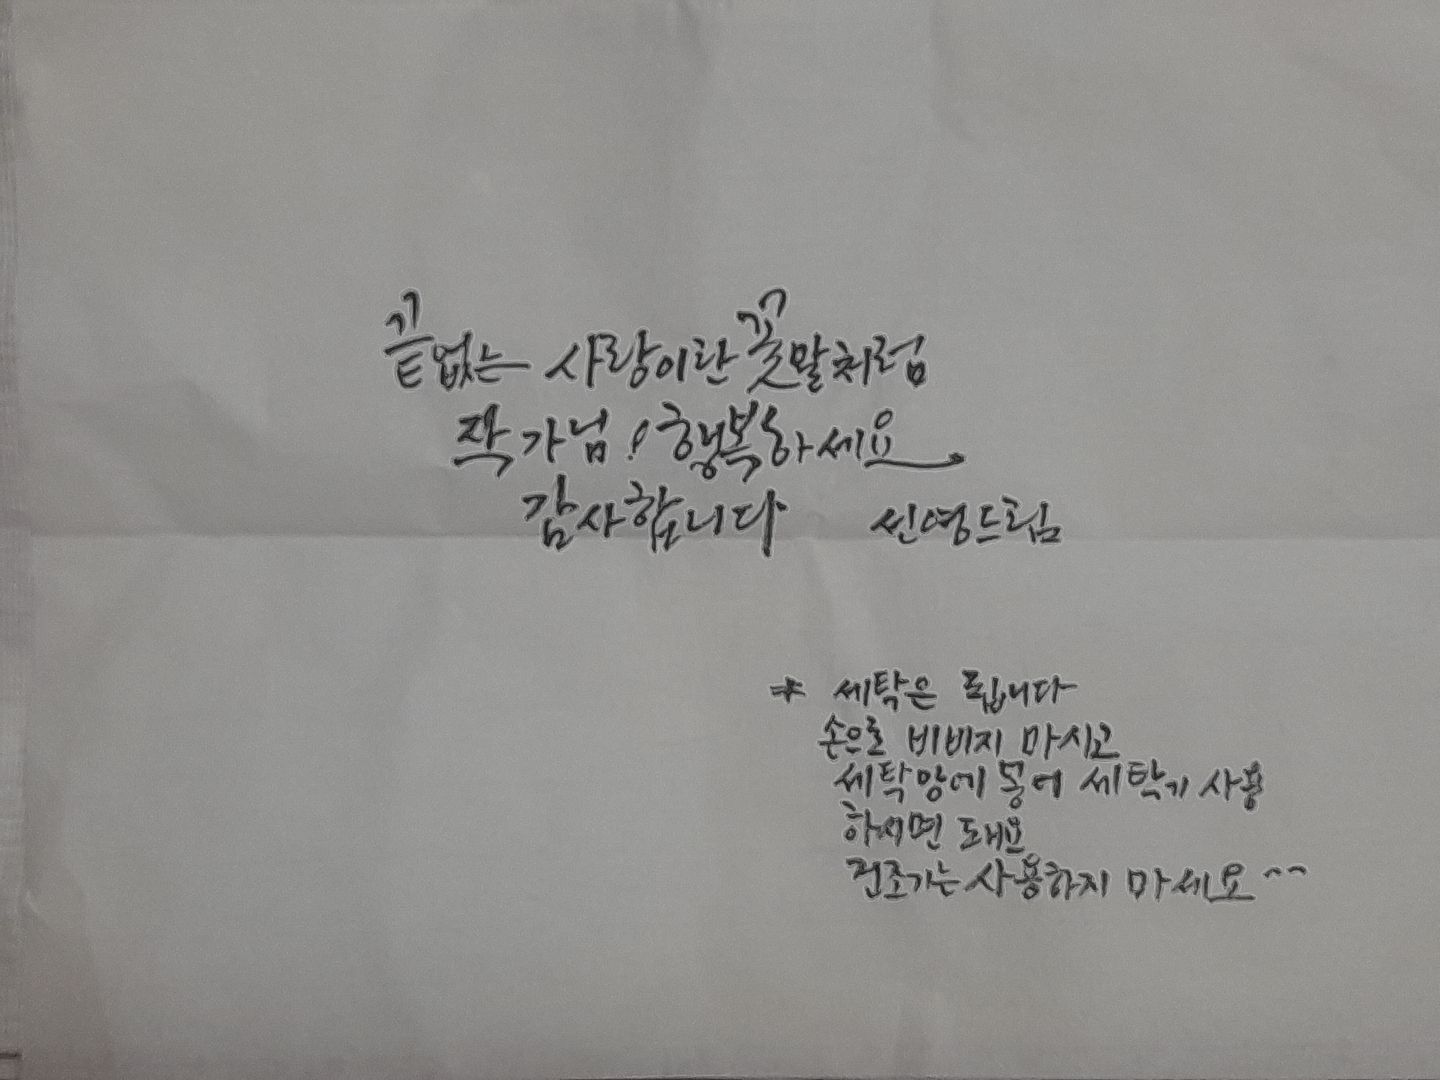 끝없는 사랑이란 꽃말처럼
작가님! 행복하세요
감사합니다 씬영드림
* 세탁은 됩니다
손으로 비비지 마시고
세탁망에 넣어 세탁기 사용
하시면 돼요
건조기는 사용하지 마세요^^